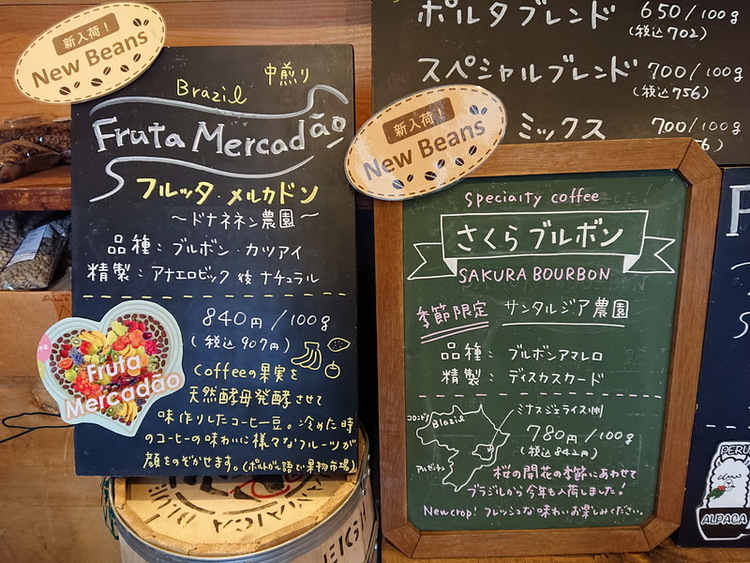 新入荷！
New Beans
Brazil 中煎り
Fruta Mercadão
フルッタ・メルカドン
〜ドナネネン農園〜
品種：ブルボン・カツアイ
精製：アナエロビック 後 ナチュラル
840円/100g
(税込 907円)
Coffeeの果実を
天然酵母発酵させて
味作りしたコーヒー豆。冷めた時
のコーヒーの味わいに様々なフルーツが
顔をのぞかせます。(ポルトガル語で果物市場)
Fruta
Mercadão
ポルタブレンド 650/100g
(税込702)
スペシャルブレンド 700/100g
(税込756)
ミックス 700/100g
新入荷！
New Beans
Specialty coffee
さくらブルボン
SAKURA BOURBON
季節限定 サンタルジア農園
品種：ブルボンアマレロ
精製：ディスカスカード
コロンビア
Blazil
ミナスジェライス州
780円/100g
(税込842円)
桜の開花の季節にあわせて
ブラジルから今年も入荷しました！
Newcrop! フレッシュな味わいお楽しみください。
PERU
ALPACA